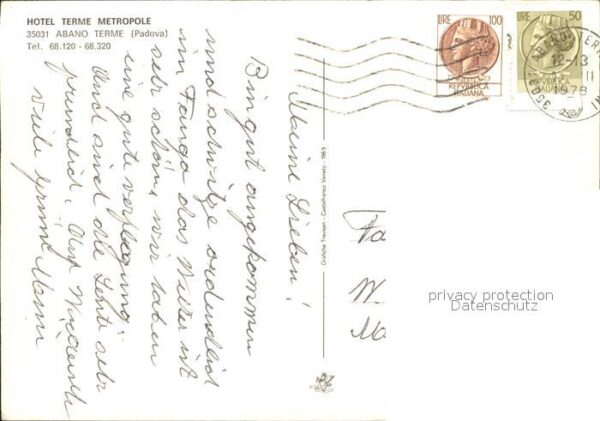 HOTEL TERME METROPOLE
35031 ABANO TERME (Padova)
Tel. 68.120 - 68.320
LIRE 100
REPUBBLICA
ITALIANA
LIRE 50
35031 ABANO TERME
12-13
11
1978
Meine Lieben!
Bin gut angekommen
und schwitze ordentlich
im Fango das Wetter ist
sehr schön, wir haben
eine gute verpflegung
und sind die Leute sehr
freundlich. Auf Wiederseh
viele grüsse
Grafiche Trevisan - Castelfranco Veneto - 1963
Fa
W
Ma
privacy protection
Datenschutz